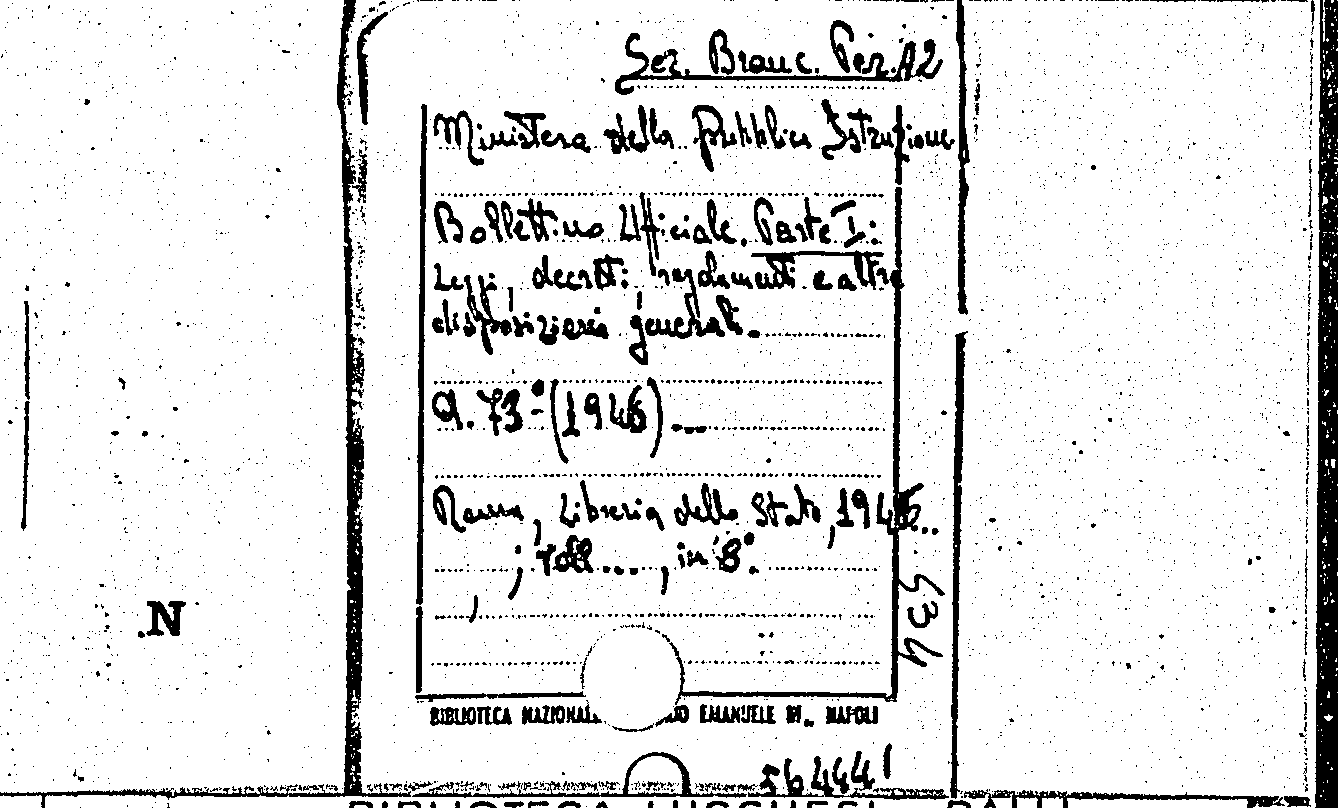 Sez. Branc. Per. A2
Ministero della pubblica Istruzione
Bollettino Ufficiale. Parte I:
Leggi, decreti, regolamenti e altre
disposizioni generali.
A. 73°-(1946)...
Roma, Libreria dello Stato, 1946..
; voll...., in 8°.
534
N
BIBLIOTECA NAZIONALE EMANUELE III., NAPOLI
564441
BIBLIOTECA LUCCHESI - PALLI